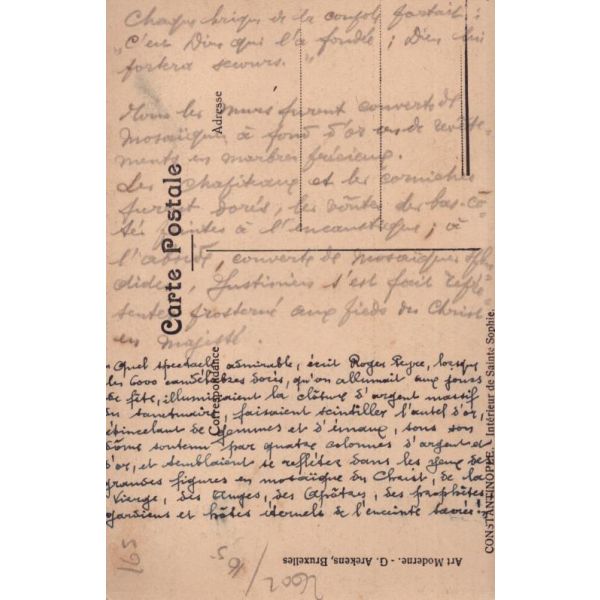 Chaque brique de la coupole portait :
"C'est Dieu qui l'a fondée ; Dieu lui
portera secours."
Tous les murs furent couverts de
mosaïques à fond d'or ou de revête-
ments en marbres précieux.
Les chapiteaux et les corniches
furent dorés, les voûtes des bas-cô-
tés peintes à l'encaustique ; à
l'abside, couverte de mosaïques splen
dides, Justinien s'est fait repré-
senter prosterné aux pieds du Christ
en Majesté.
"Quel spectacle admirable, écrit Roger Peyre, lorsque
les 6000 candélabres dorés, qu'on allumait aux jours
de fête, illuminaient la clôture d'argent massif
du sanctuaire, faisaient scintiller l'autel d'or,
étincelant de gemmes et d'émaux, sous son
dôme soutenu par quatre colonnes d'argent et
d'or, et semblaient se refléter dans les yeux de
grandes figures en mosaïque du Christ, de la
Vierge, des Anges, des Apôtres, des prophètes
gardiens et hôtes éternels de l'enceinte sacrée."
Carte Postale
Adresse
Correspondance
CONSTANTINOPLE. Intérieur de Sainte Sophie.
Art Moderne. - G. Arekens, Bruxelles